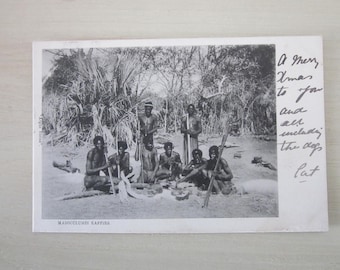 A Merry
Xmas
to you
and
all
including
the dogs
Cat
MASHUKULUMBI KAFFIRS